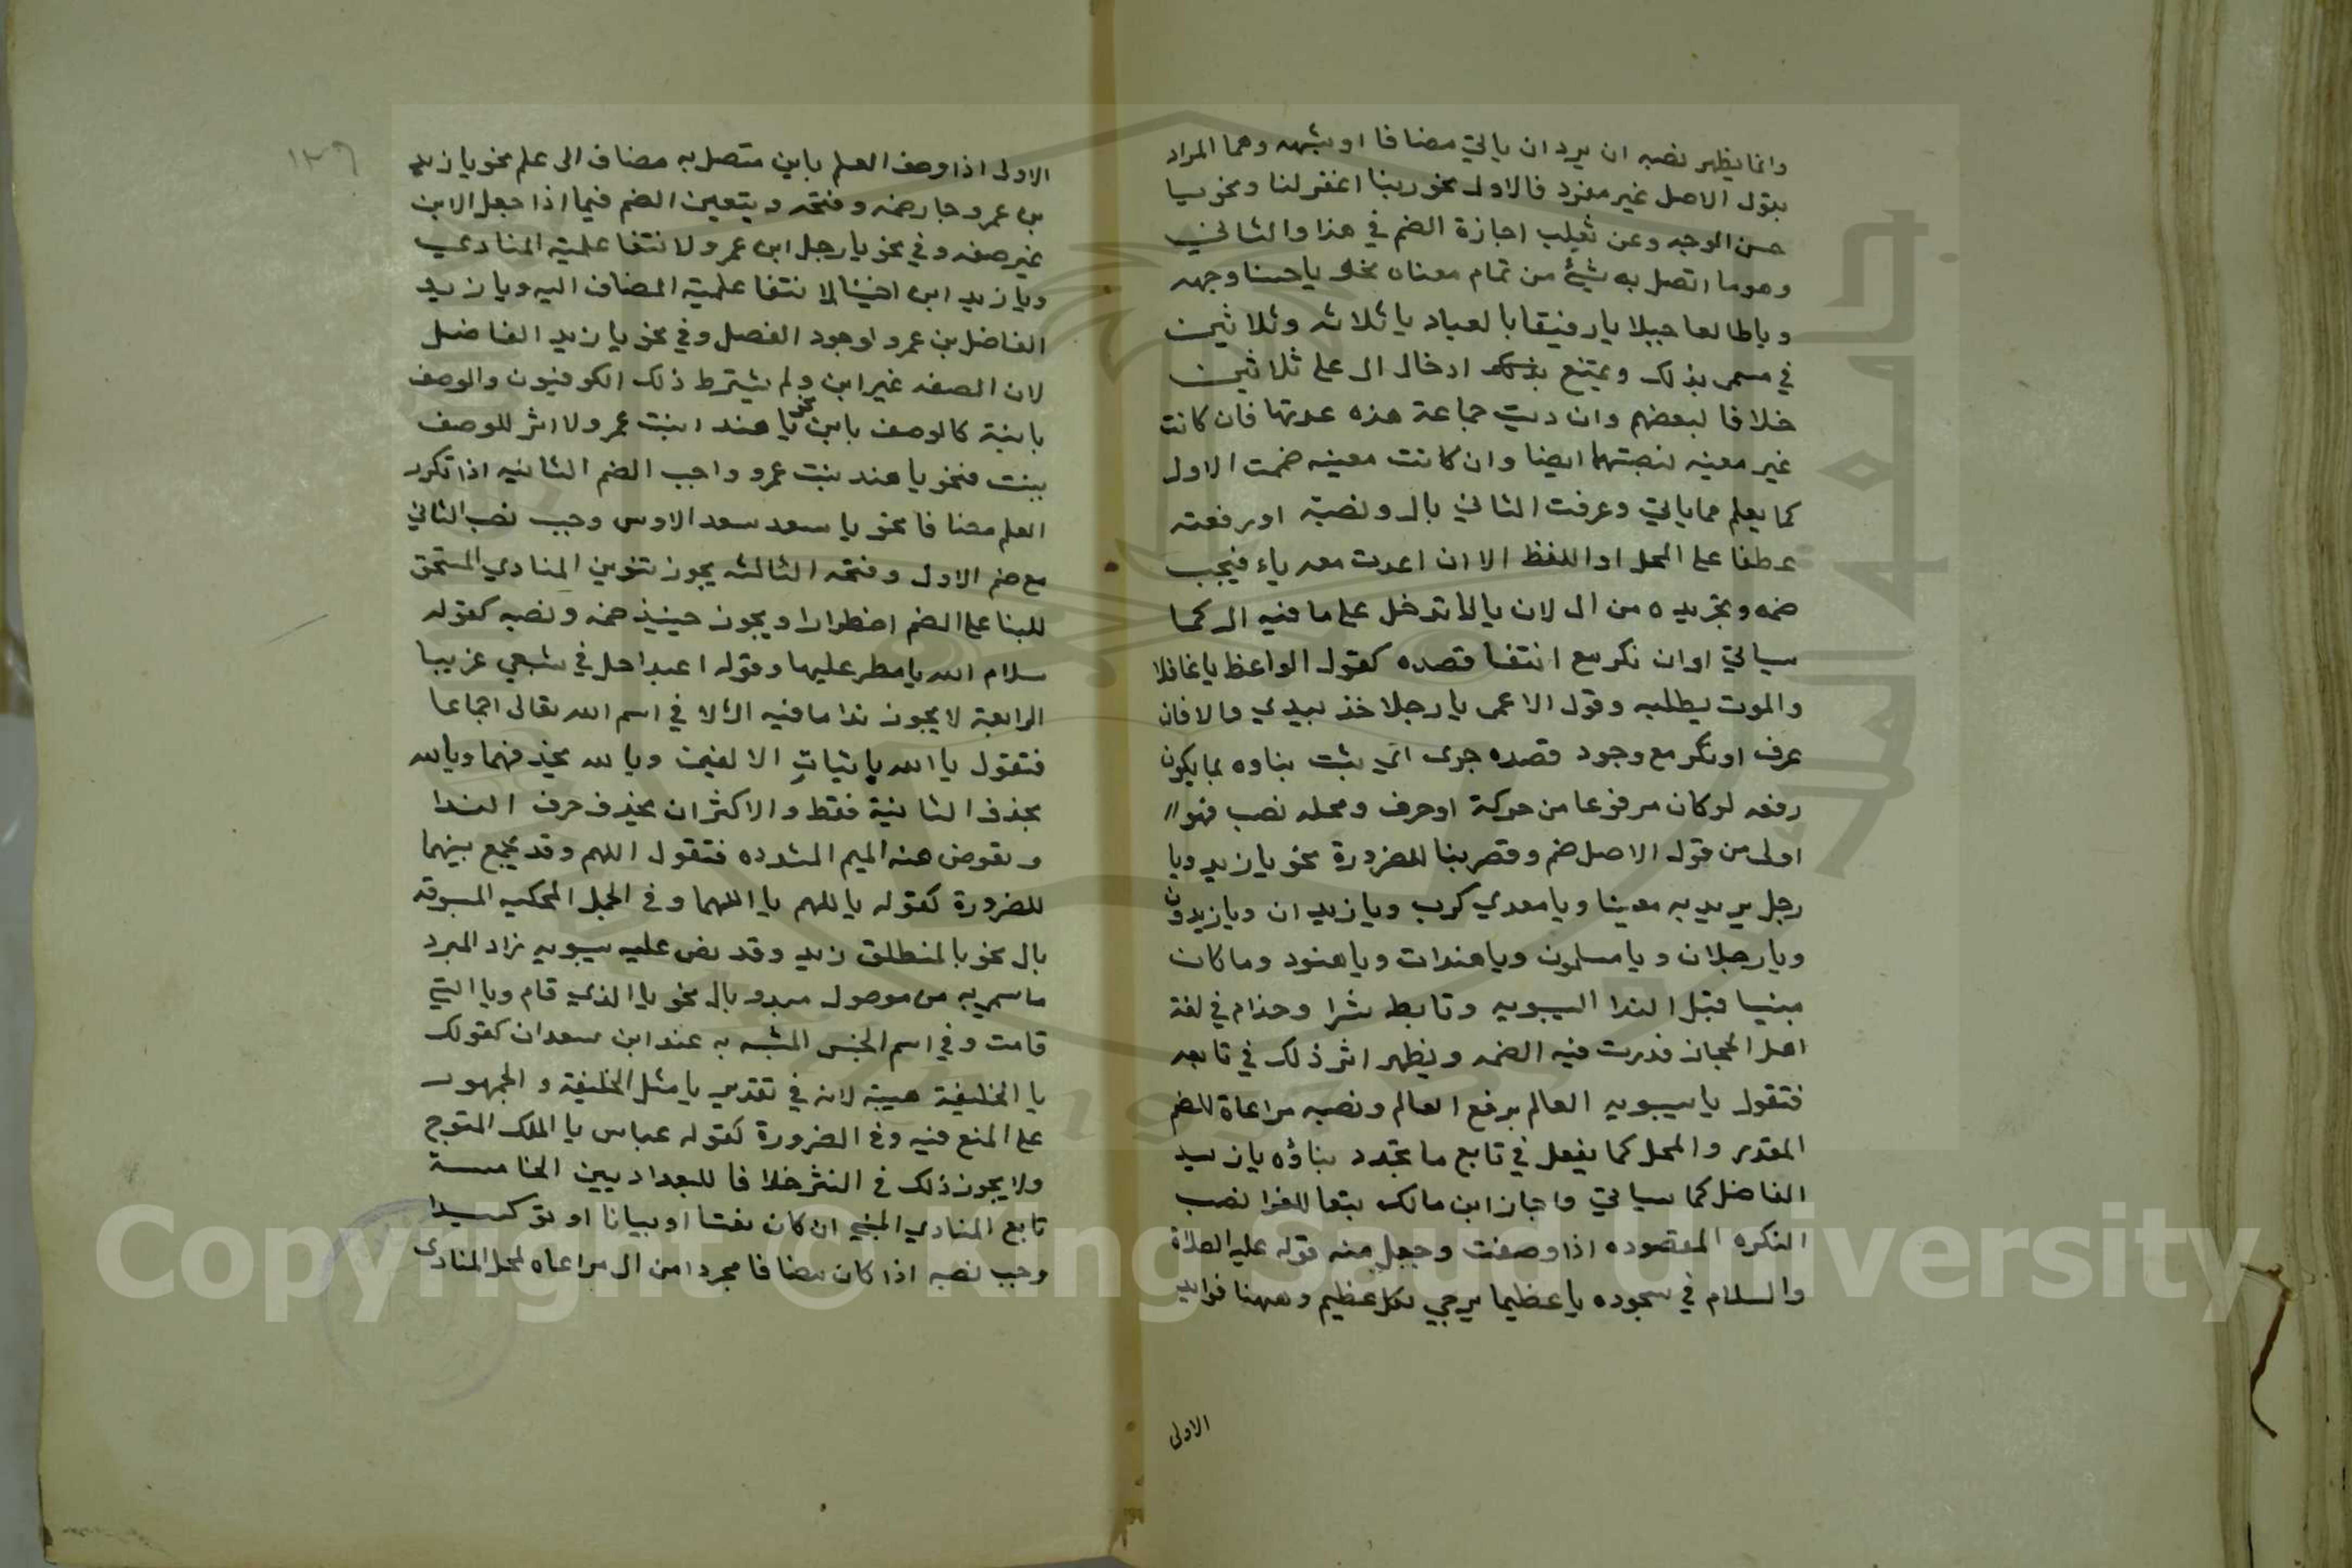 وانما يظهر نصبه ان يرد ان ياتي مضافا او شبهه وهما المراد
بقول الاصل غير مفرد فالاول نحو ربنا اغفر لنا ونحو يا
حسن الوجه وعن ثعلب اجازة الضم في هذا والثاني
وهو ما اتصل به شيء من تمام معناه نحو يا حسنا وجهه
ويا طالعا جبلا يا رفيقا بالعباد يا ثلاثه وثلاثين
في مسمى بذلك ويمتنع ادخال ال على ثلاثين
خلافا لبعضهم وان ديت جماعة هذه عدتها فان كانت
غير معينه نصبتهما ايضا وان كانت معينه ضمت الاول
كما يعلم مما ياتي وعرفت الثاني بال ونصبته او رفعته
عطفا على المحل او اللفظ الا ان اعدت معه ياء فيجب
ضمه وتجريده من ال لان يا لا تدخل على ما فيه ال كما
سياتي او ان نكر مع انتفا قصده كقول الواعظ يا غافلا
والموت يطلبه وقول الاعمى يا رجلا خذ بيدي والا فان
عرف او نكر مع وجود قصده جرى اي ثبت بناوه بما يكون
رفعه لو كان مرفوعا من حركة او حرف ومحله نصب فهو
اولى من قول الاصل ضم وقصر بنا للضرورة نحو يا زيد ويا
رجل يريد به معينا ويا معدي كرب ويا زيدان ويا زيدون
ويا رجلان ويا مسلمون ويا هندات ويا هنود وما كان
مبنيا قبل الندا كسيبويه وتابط شرا وحذام في لغة
اهل الحجاز قدرت فيه الضمه ويظهر اثر ذلك في تابعه
فتقول يا سيبويه العالم برفع العالم ونصبه مراعاة للضم
المقدر والمحل كما يفعل في تابع ما تجدد بناؤه يا زيد
الفاضل كما سياتي واجاز ابن مالك تبعا للفرا نصب
النكره المقصوده اذا وصفت وجعل منه قوله عليه الصلاة
والسلام في سجوده يا عظيما يرجى لكل عظيم وههنا فوايد
الاولى
١٣٦
الاولى اذا وصف العلم بابن متصل به مضاف الى علم نحو يا زيد
بن عمرو جاز ضمه وفتحه ويتعين الضم فيما اذا جعل الابن
غير صفه وفي نحو يا رجل ابن عمرو لانتفا علمية المنادي
ويا زيد ابن اخينا لانتفا علمية المضاف اليه ويا زيد
الفاضل بن عمرو لوجود الفصل وفي نحو يا زيد الفاضل
لان الصفه غير ابن ولم يشترط ذلك الكوفيون والوصف
بابنة كالوصف بابن نحو يا هند ابنت عمرو ولا اثر للوصف
ببنت فنحو يا هند بنت عمرو واجب الضم الثانيه اذا تكرر
العلم مضافا نحو يا سعد سعد الاوس وجب نصب الثاني
مع ضم الاول وفتحه الثالثه يجوز تنوين المنادي المستحق
للبنا على الضم اضطرارا ويجوز حينيذ ضمه ونصبه كقوله
سلام الله يا مطر عليها وقوله اعبدا حل في شعبي غريبا
الرابعة لا يجوز ندا ما فيه ال الا في اسم الله تعالى اجماعا
فتقول يا الله باثبات الالفين ويا لله بحذفهما ويالله
بحذف الثانية فقط والاكثر ان يحذف حرف الندا
وتعوض عنه الميم المشدده فتقول اللهم وقد يجمع بينهما
للضرورة كقوله يا للهم يا اللهما وفي الجمل المحكيه المسبوقه
بال نحو يا لمنطلق زيد وقد نص عليه سيبويه زاد المبرد
ما سمي به من موصول مبدو بال نحو يا الذي قام ويا التي
قامت وفي اسم الجنس المشبه به عند ابن سعدان كقولك
يا الخليفة هيبة لانه في تقدير يا مثل الخليفة والجمهور
على المنع فيه وفي الضرورة كقوله عباس يا الملك المتوج
ولا يجوز ذلك في النثر خلافا للبغداديين الخامسة
تابع المنادي المبني ان كان نعتا او بيانا او توكيدا
وجب نصبه اذا كان مضافا مجردا من ال مراعاه لمحل المنادى
Copyright © King Saud University